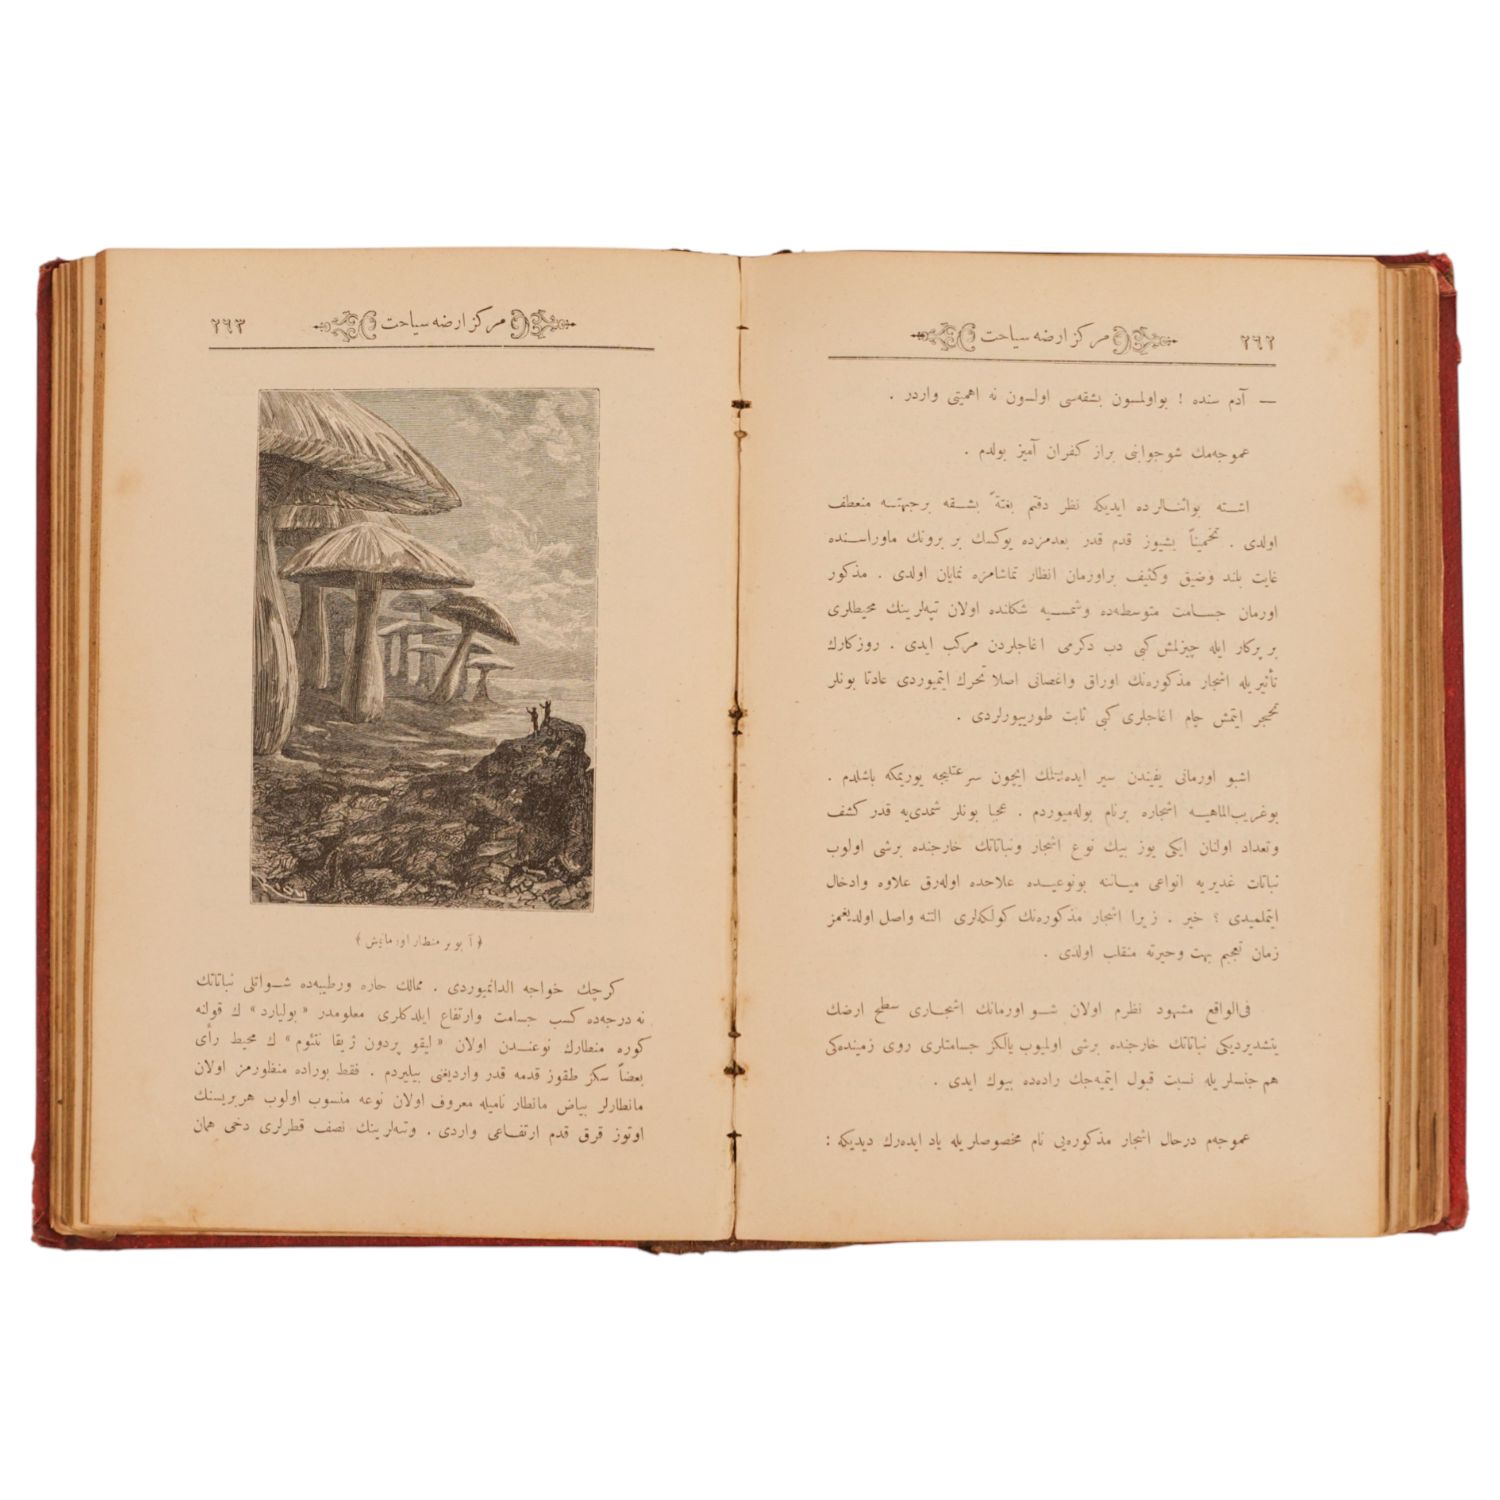 ٢٦٢
مركز ارضه سياحت
— آدم سنده ! بواولمسون بشقه‌سى اولسون نه اهميتى واردر .
عموجه‌مك شوجوابنى براز كفران آميز بولدم .
اشته بواثنالرده ايديكه نظر دقتم بغتةً بشقه برجهته منعطف
اولدى . تخميناً بشيوز قدم قدر بعدمزده يوكسك بر برونك ماوراسنده
غايت بلند وضيق وكثيف براورمان انظار تماشامزه نمايان اولدى . مذكور
اورمان جسامت متوسطه‌ده وشمسيه شكلنده اولان تپه‌لرينك محيطلرى
بر پركار ايله چيزلمش كبى دب دكرمى اغاجلردن مركب ايدى . روزكارك
تأثيريله اشجار مذكوره‌نك اوراق واغصانى اصلا تحرك ايتميوردى عادتا بونلر
تحجر ايتمش چام اغاجلرى كبى ثابت طورييورلردى .
اشبو اورمانى يقيندن سير ايده‌بيلمك ايچون سرعتليجه يوريمكه باشلدم .
بوغريب‌الماهيه اشجاره برنام بوله‌ميوردم . عجبا بونلر شمدى‌يه قدر كشف
وتعداد اولنان ايكى يوز بيك نوع اشجار ونباتاتك خارجنده برشى اولوب
نباتات غديريه انواعى ميانه بونوعيده علاحده اوله‌رق علاوه وادخال
ايتملميدى ؟ خير . زيرا اشجار مذكوره‌نك كولكه‌لرى التنه واصل اولديغمز
زمان تعجبم بهت وحيرته منقلب اولدى .
فى‌الواقع مشهود نظرم اولان شو اورمانك اشجارى سطح ارضك
يتشديرديكى نباتاتك خارجنده برشى اولميوب يالكز جسامتلرى روى زمينده‌كى
هم جنسلريله نسبت قبول ايتميه‌جك راده‌ده بيوك ايدى .
عموجه‌م درحال اشجار مذكوره‌يى نام مخصوصلريله ياد ايده‌رك ديديكه :
٢٦٣
مركز ارضه سياحت
﴿ آ بو بر منطار اورمانيش ﴾
كرچك خواجه الدانميوردى . ممالك حاره ورطيبه‌ده شواتلى نباتاتك
نه درجه‌ده كسب جسامت وارتفاع ايلدكلرى معلومدر «بوليارد» ك قولنه
كوره منطارك نوعندن اولان «ليقو پردون ژيقا نتئوم» ك محيط رأى
بعضاً سكز طقوز قدمه قدر وارديغنى بيليردم . فقط بوراده منظورمز اولان
مانطارلر بياض مانطار ناميله معروف اولان نوعه منسوب اولوب هربريسنك
اوتوز قرق قدم ارتفاعى واردى . وتپه‌لرينك نصف قطرلرى دخى همان